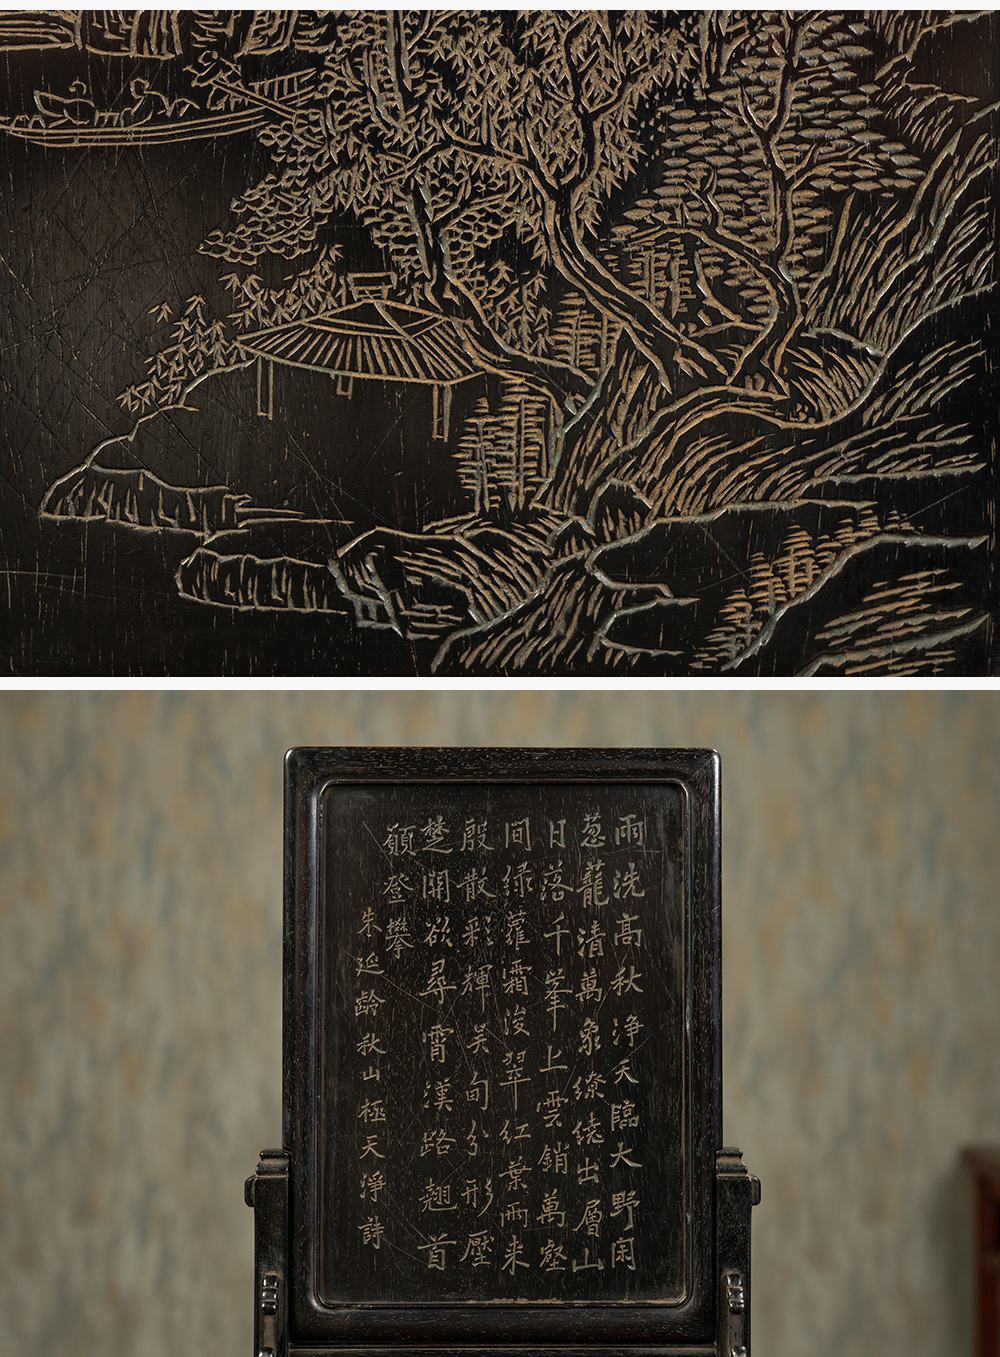 雨洗高秋淨天臨大野閑
葱蘢清萬象繚繞出層山
日落千峯上雲銷萬壑
間緑蘿霜後翠紅葉雨来
殷散彩輝吴甸分形壓
楚關欲尋霄漢路翹首
願登攀
朱延齡秋山極天淨詩